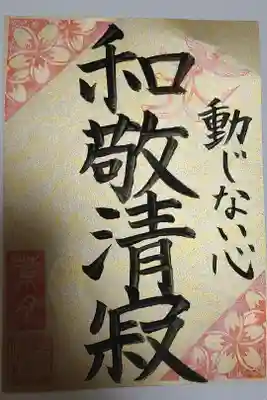 動じない心
和敬清寂